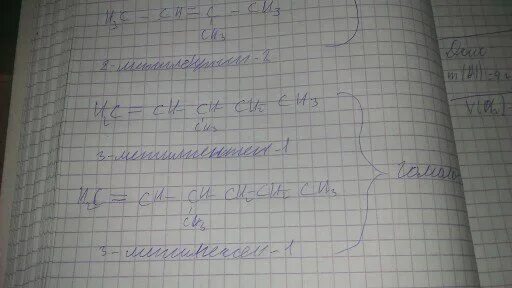 H₃C - CH = C - CH₃
CH₃
2-метилбутен-2
H₂C = CH - CH CH₂ CH₃
CH₃
3-метилпентен-1
H₂C = CH - CH CH₂ CH₂ CH₃
CH₃
3-метилгексен-1
гомол
Дано
m(Al)=9
V(